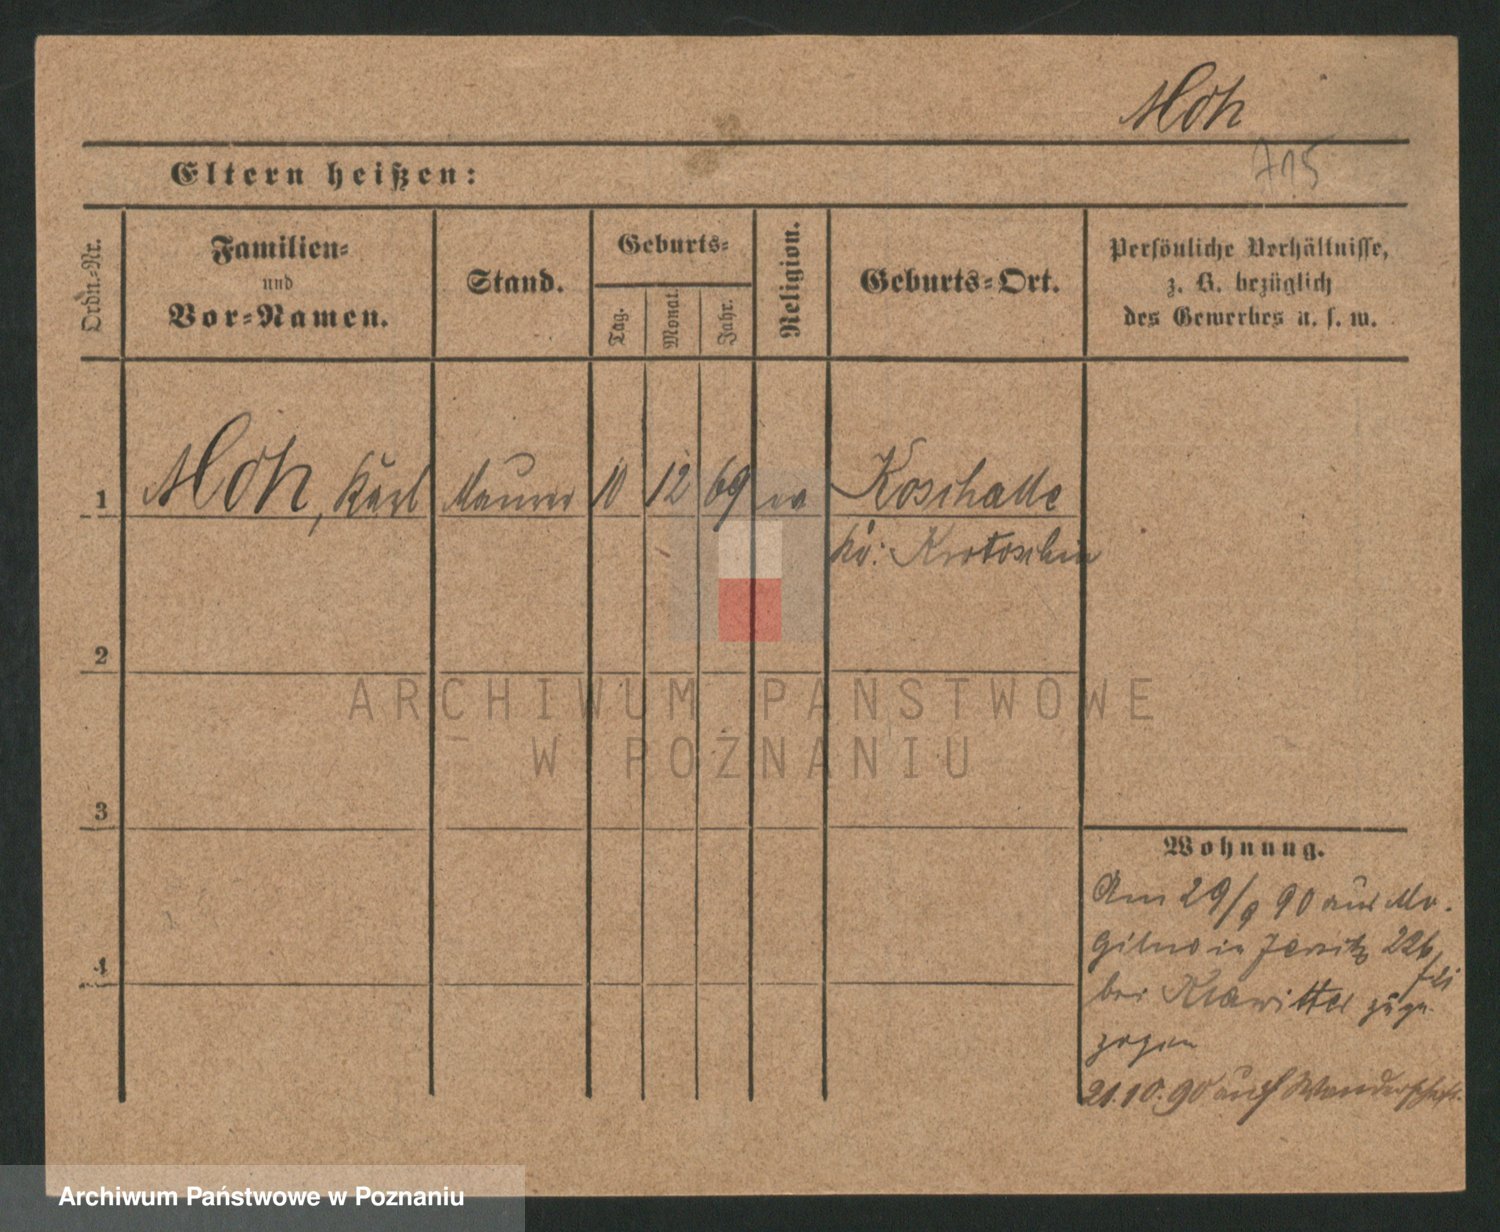 Moh
715
Eltern heißen:
Ordn.-Nr.
Familien-
und
Vor-Namen.
Stand.
Geburts-
Tag.
Monat.
Jahr.
Religion.
Geburts-Ort.
Persönliche Verhältnisse,
z. B. bezüglich
des Gewerbes u. s. w.
1 Moh, Karl Maurer 10 12 69 ev Koschalle
Kr: Krotoschin
2
3
4
Wohnung.
Am 29/9 90 aus Mo-
gilno in Jersitz 226
bei Klawitter zuge-
zogen
21.10.90 auf Wanderschaft.
ARCHIWUM PAŃSTWOWE
W POZNANIU
Archiwum Państwowe w Poznaniu